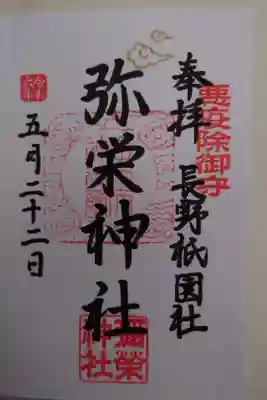 奉拝 長野祇園社
悪疫除御守
弥栄神社
彌榮神社
五月二十二日